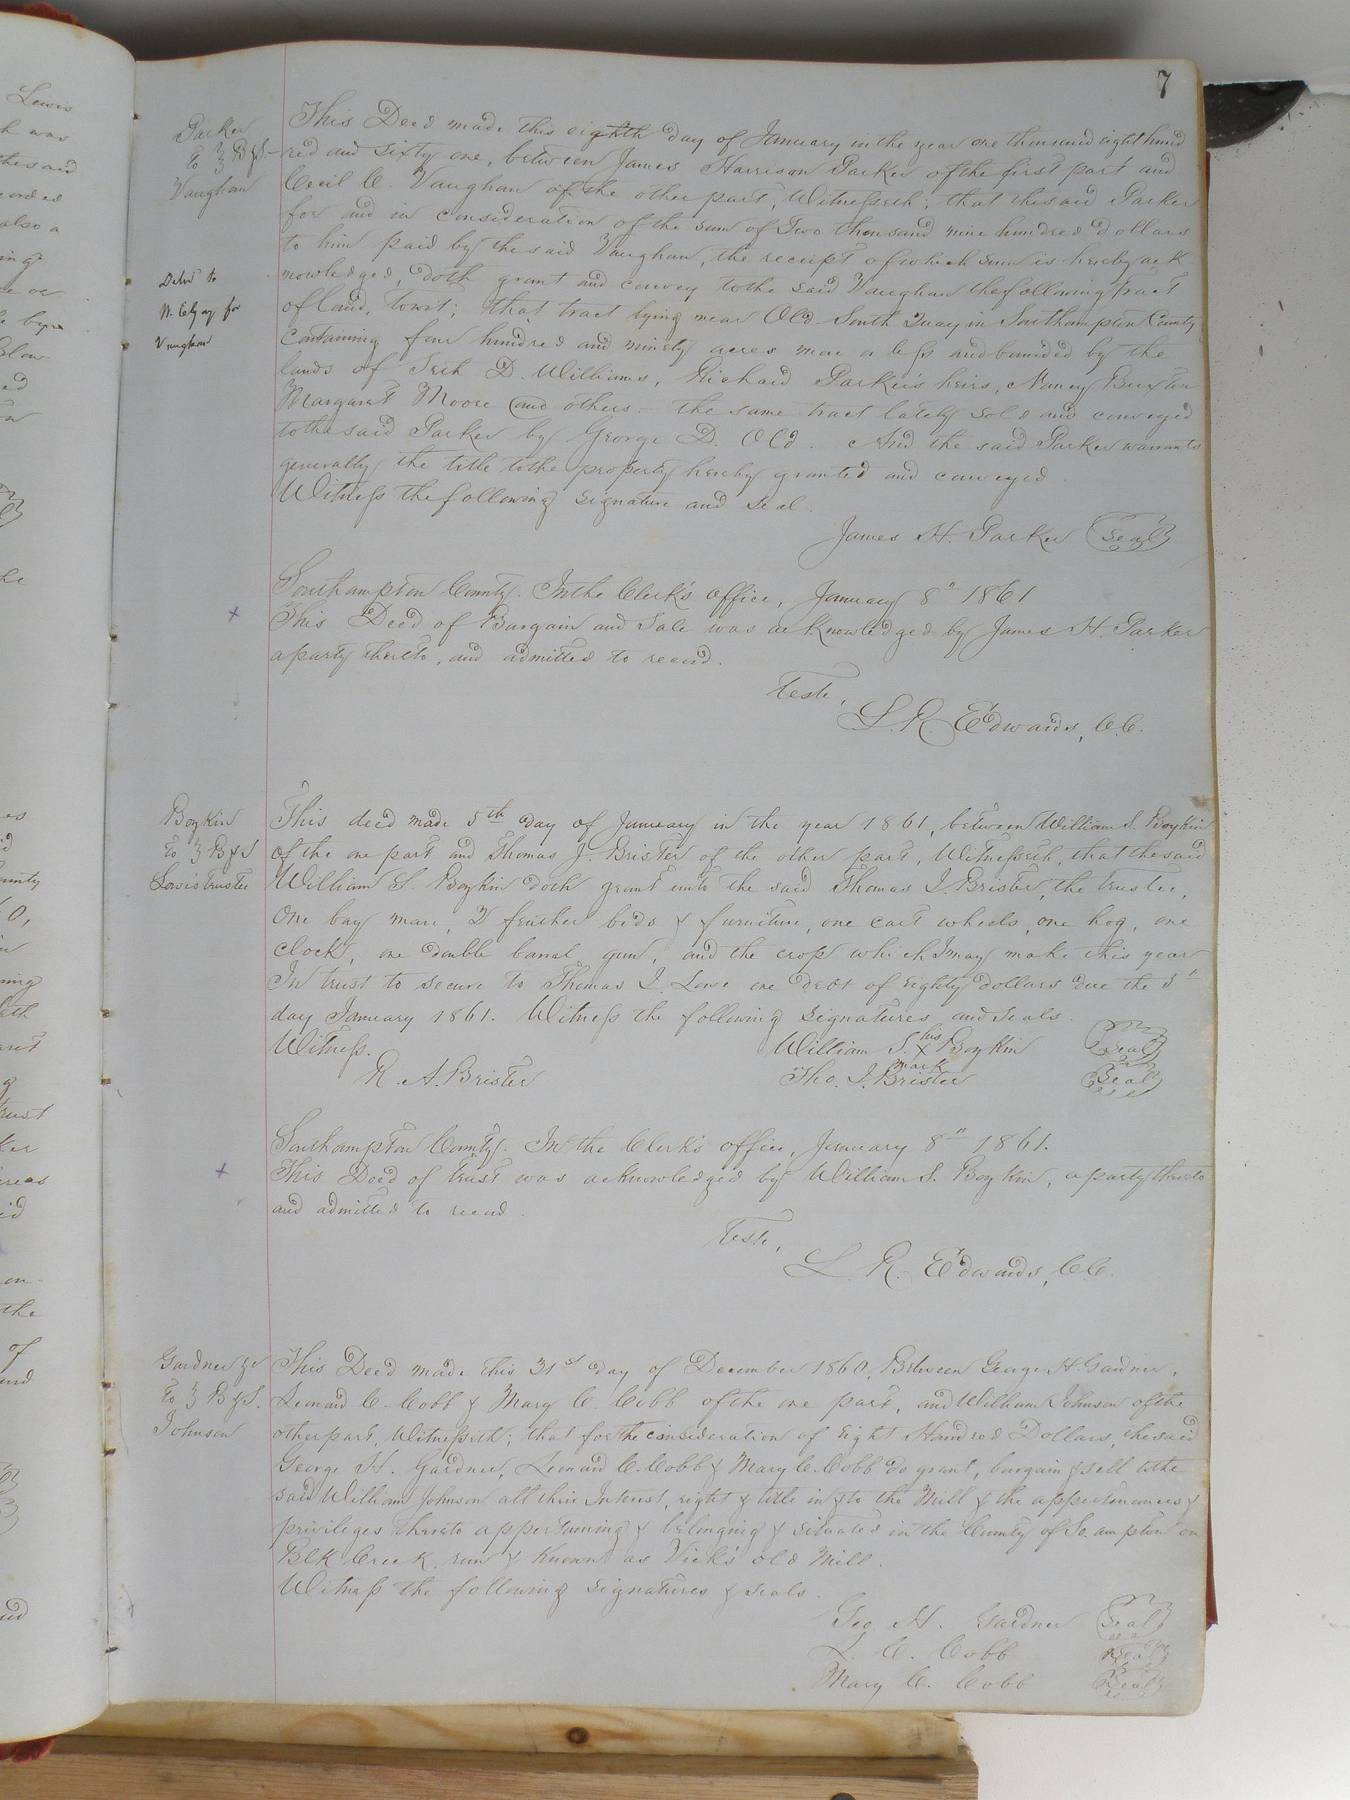 7
Parker
to } B&S
Vaughan
Deliv'd to
for
Vaughan
This Deed made this eighth day of January in the year one thousand eight hund
red and sixty one, between James Harrison Parker of the first part and
Cecil C. Vaughan of the other part, Witnesseth; that the said Parker
for and in consideration of the sum of Two thousand nine hundred dollars
to him paid by the said Vaughan, the receipt of which sum is hereby ack
nowledged, doth grant and convey to the said Vaughan the following tract
of land, towit; that tract lying near Old South Quay in Southampton County
Containing four hundred and ninety acres more or less and bounded by the
lands of Seth D. Williams, Richard Parker's heirs, Nancy Buxton
Margaret Moore and others - the same tract lately sold and conveyed
to the said Parker by George D. Old. And the said Parker warrants
generally the title to the property hereby granted and conveyed.
Witness the following signature and seal.
James H. Parker Seal
Southampton County. In the Clerk's office, January 8" 1861
This Deed of Bargain and Sale was acknowledged by James H. Parker
a party thereto, and admitted to record.
Teste,
L. R. Edwards, C.C.
Boykin
to } B&S
Lowe's trustee
This deed made 5th day of January in the year 1861, between William S. Boykin
of the one part and Thomas J. Brister of the other part, Witnesseth, that the said
William S. Boykin doth grant unto the said Thomas J. Brister, the trustee,
One bay mare, 2 feather beds & furniture, one cart wheels, one hog, one
clock, one double barral gun, and the crop which I may make this year
In trust to secure to Thomas J. Lowe one debt of eighty dollars due the 5th
day January 1861. Witness the following signatures and seals.
Witness. William S. his X mark Boykin Seal
R. A. Brister Tho. J. Brister Seal
Southampton County. In the Clerk's office, January 8" 1861.
This Deed of trust was acknowledged by William S. Boykin, a party thereto
and admitted to record.
Teste,
L. R. Edwards, C.C.
Gardner &c
to } B&S.
Johnson
This Deed made this 31st day of December 1860, Between George H. Gardner,
Leonard C. Cobb & Mary C. Cobb of the one part, and William Johnson of the
other part, Witnesseth; that for the consideration of Eight Hundred Dollars, the said
George H. Gardner, Leonard C. Cobb & Mary C. Cobb do grant, bargain & sell to the
said William Johnson all their Interest, right & title in & to the Mill & the appertenances &
privileges thereto appertaining & belonging & situated in the County of So.ampton on
Blk Creek run & known as Vick's old Mill.
Witness the following signatures & seals.
Geo H. Gardner Seal
L. C. Cobb Seal
Mary C. Cobb Seal